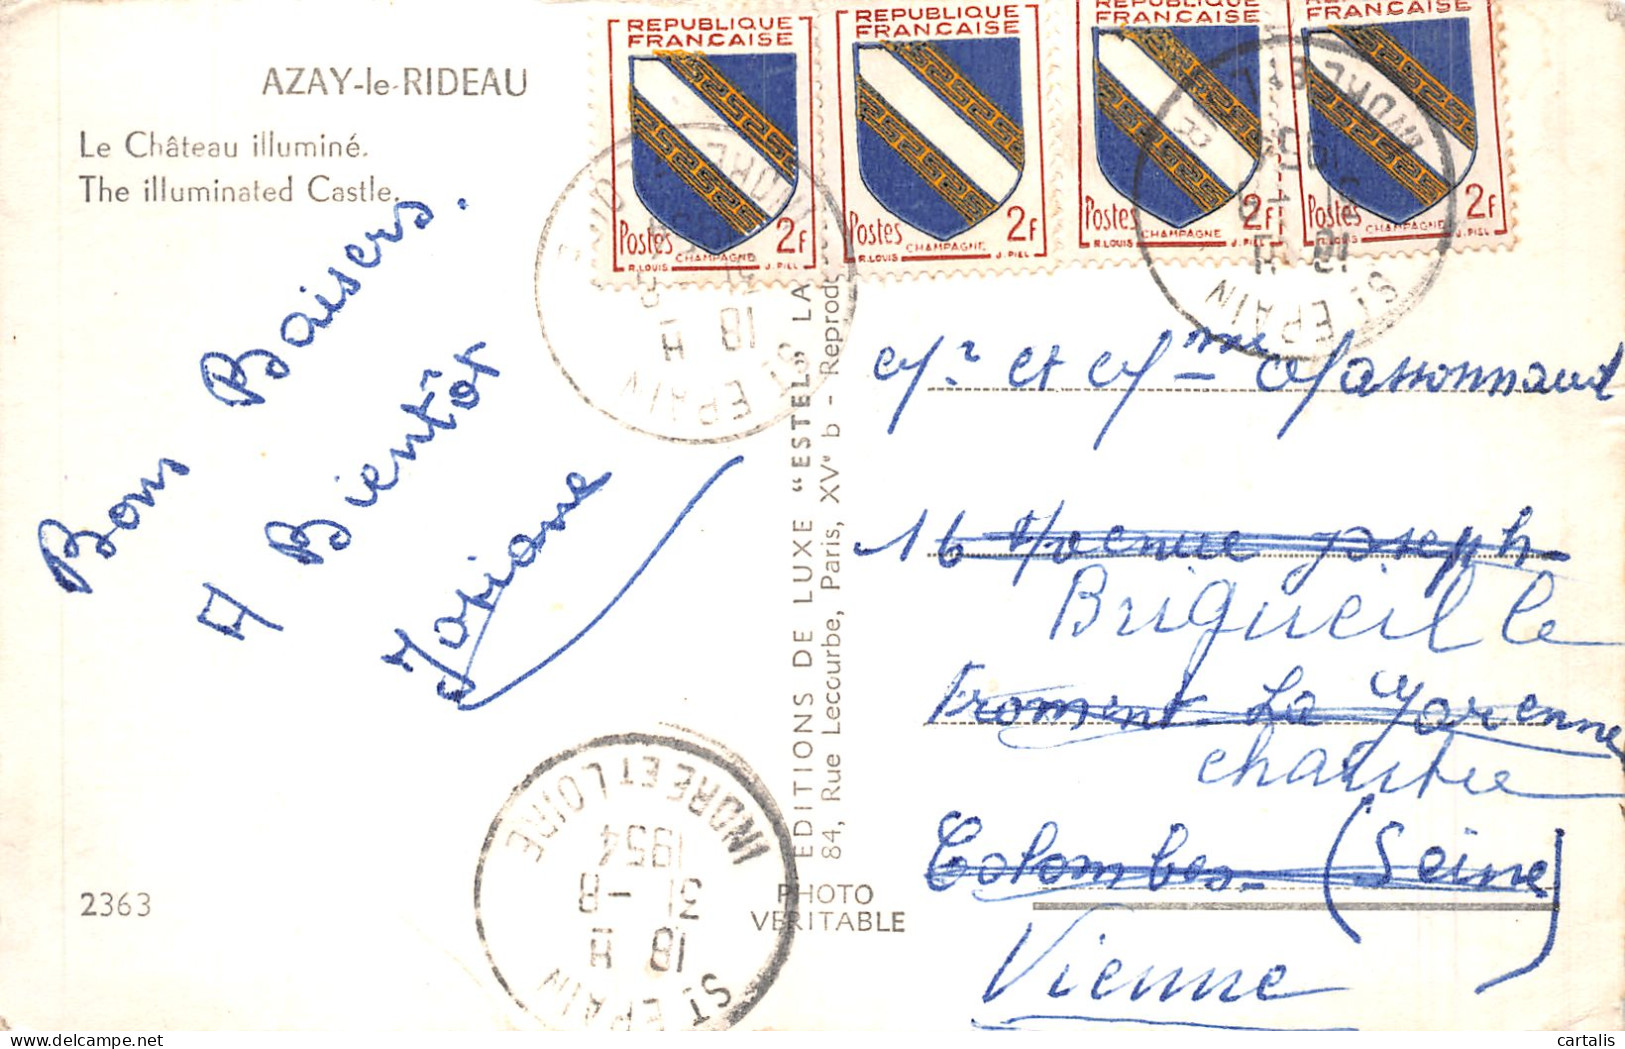 AZAY-le-RIDEAU
Le Château illuminé.
The illuminated Castle.
Bons Baisers.
A Bientôt
2363
EDITIONS DE LUXE "ESTEL" LA
84, Rue Lecourbe, Paris, XVe b - Reprod
PHOTO
VÉRITABLE
REPUBLIQUE
FRANCAISE
Postes 2F
CHAMPAGNE
R.LOUIS J.PIEL
REPUBLIQUE
FRANCAISE
Postes 2F
CHAMPAGNE
R.LOUIS J.PIEL
REPUBLIQUE
FRANCAISE
Postes 2F
CHAMPAGNE
R.LOUIS J.PIEL
FRANCAISE
Postes 2F
CHAMPAGNE
R.LOUIS J.PIEL
ST EPAIN
18 H
INDRE
ST EPAIN
18 H
INDRE
ST EPAIN
18 H
31 -8
1954
INDRE ET LOIRE
Mr et Mme Massonnaud
16 Avenue Joseph
Brigueil le
Froment La Garenne
Chantre
Colombes (Seine)
Vienne
cartalis